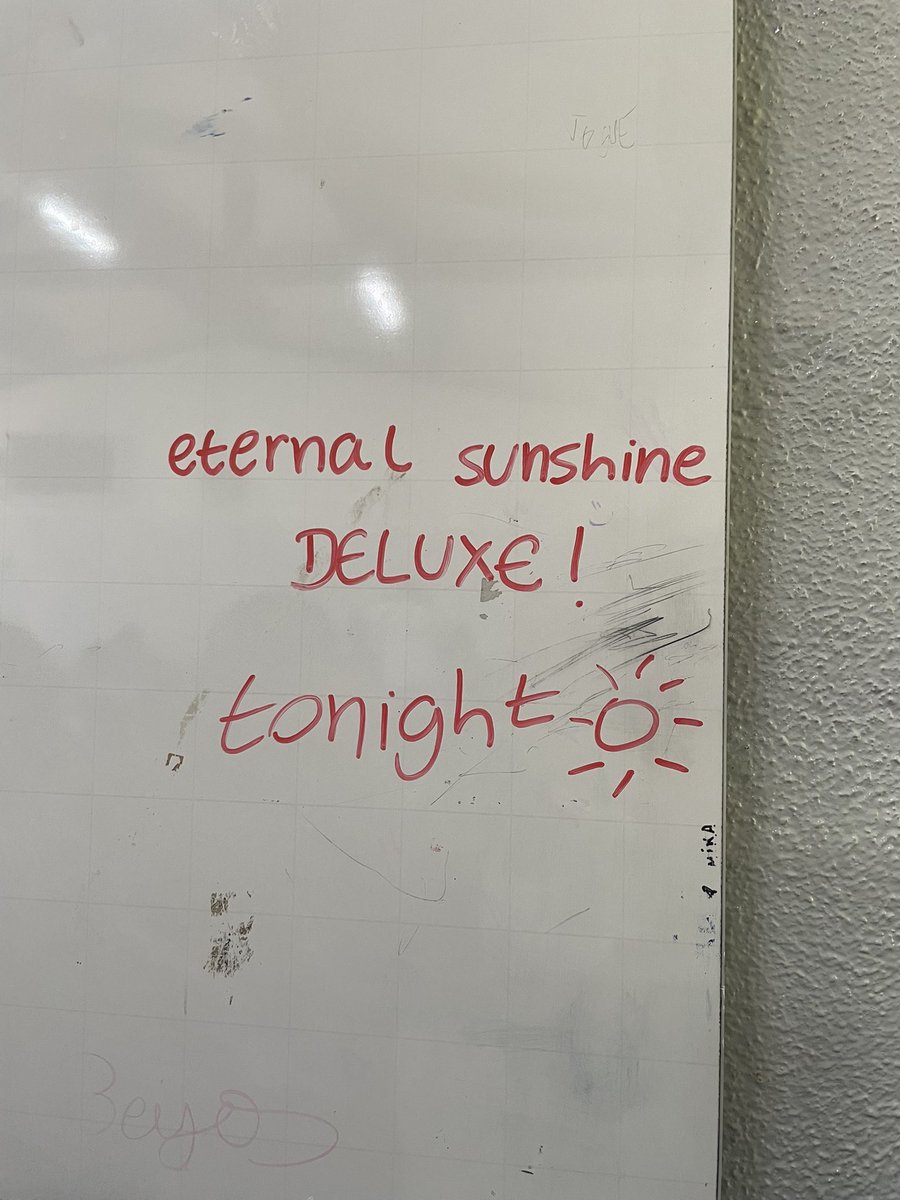 eternal sunshine
DELUXE!
tonight
NIKA
Beyo